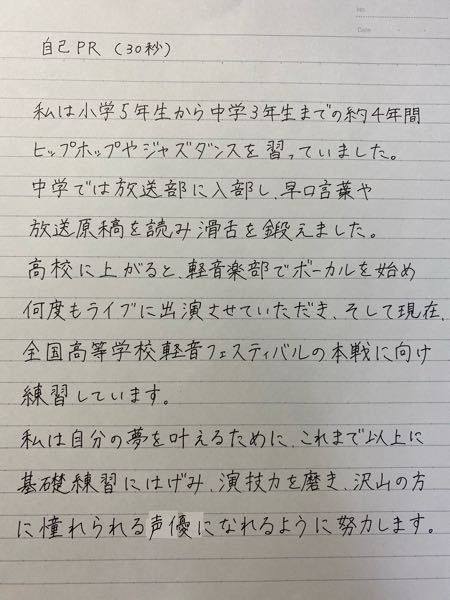 No.
Date
自己PR（30秒）
私は小学5年生から中学3年生までの約4年間
ヒップホップやジャズダンスを習っていました。
中学では放送部に入部し、早口言葉や
放送原稿を読み滑舌を鍛えました。
高校に上がると、軽音楽部でボーカルを始め
何度もライブに出演させていただき、そして現在、
全国高等学校軽音フェスティバルの本戦に向け
練習しています。
私は自分の夢を叶えるために、これまで以上に
基礎練習にはげみ、演技力を磨き、沢山の方
に憧れられる声優になれるように努力します。